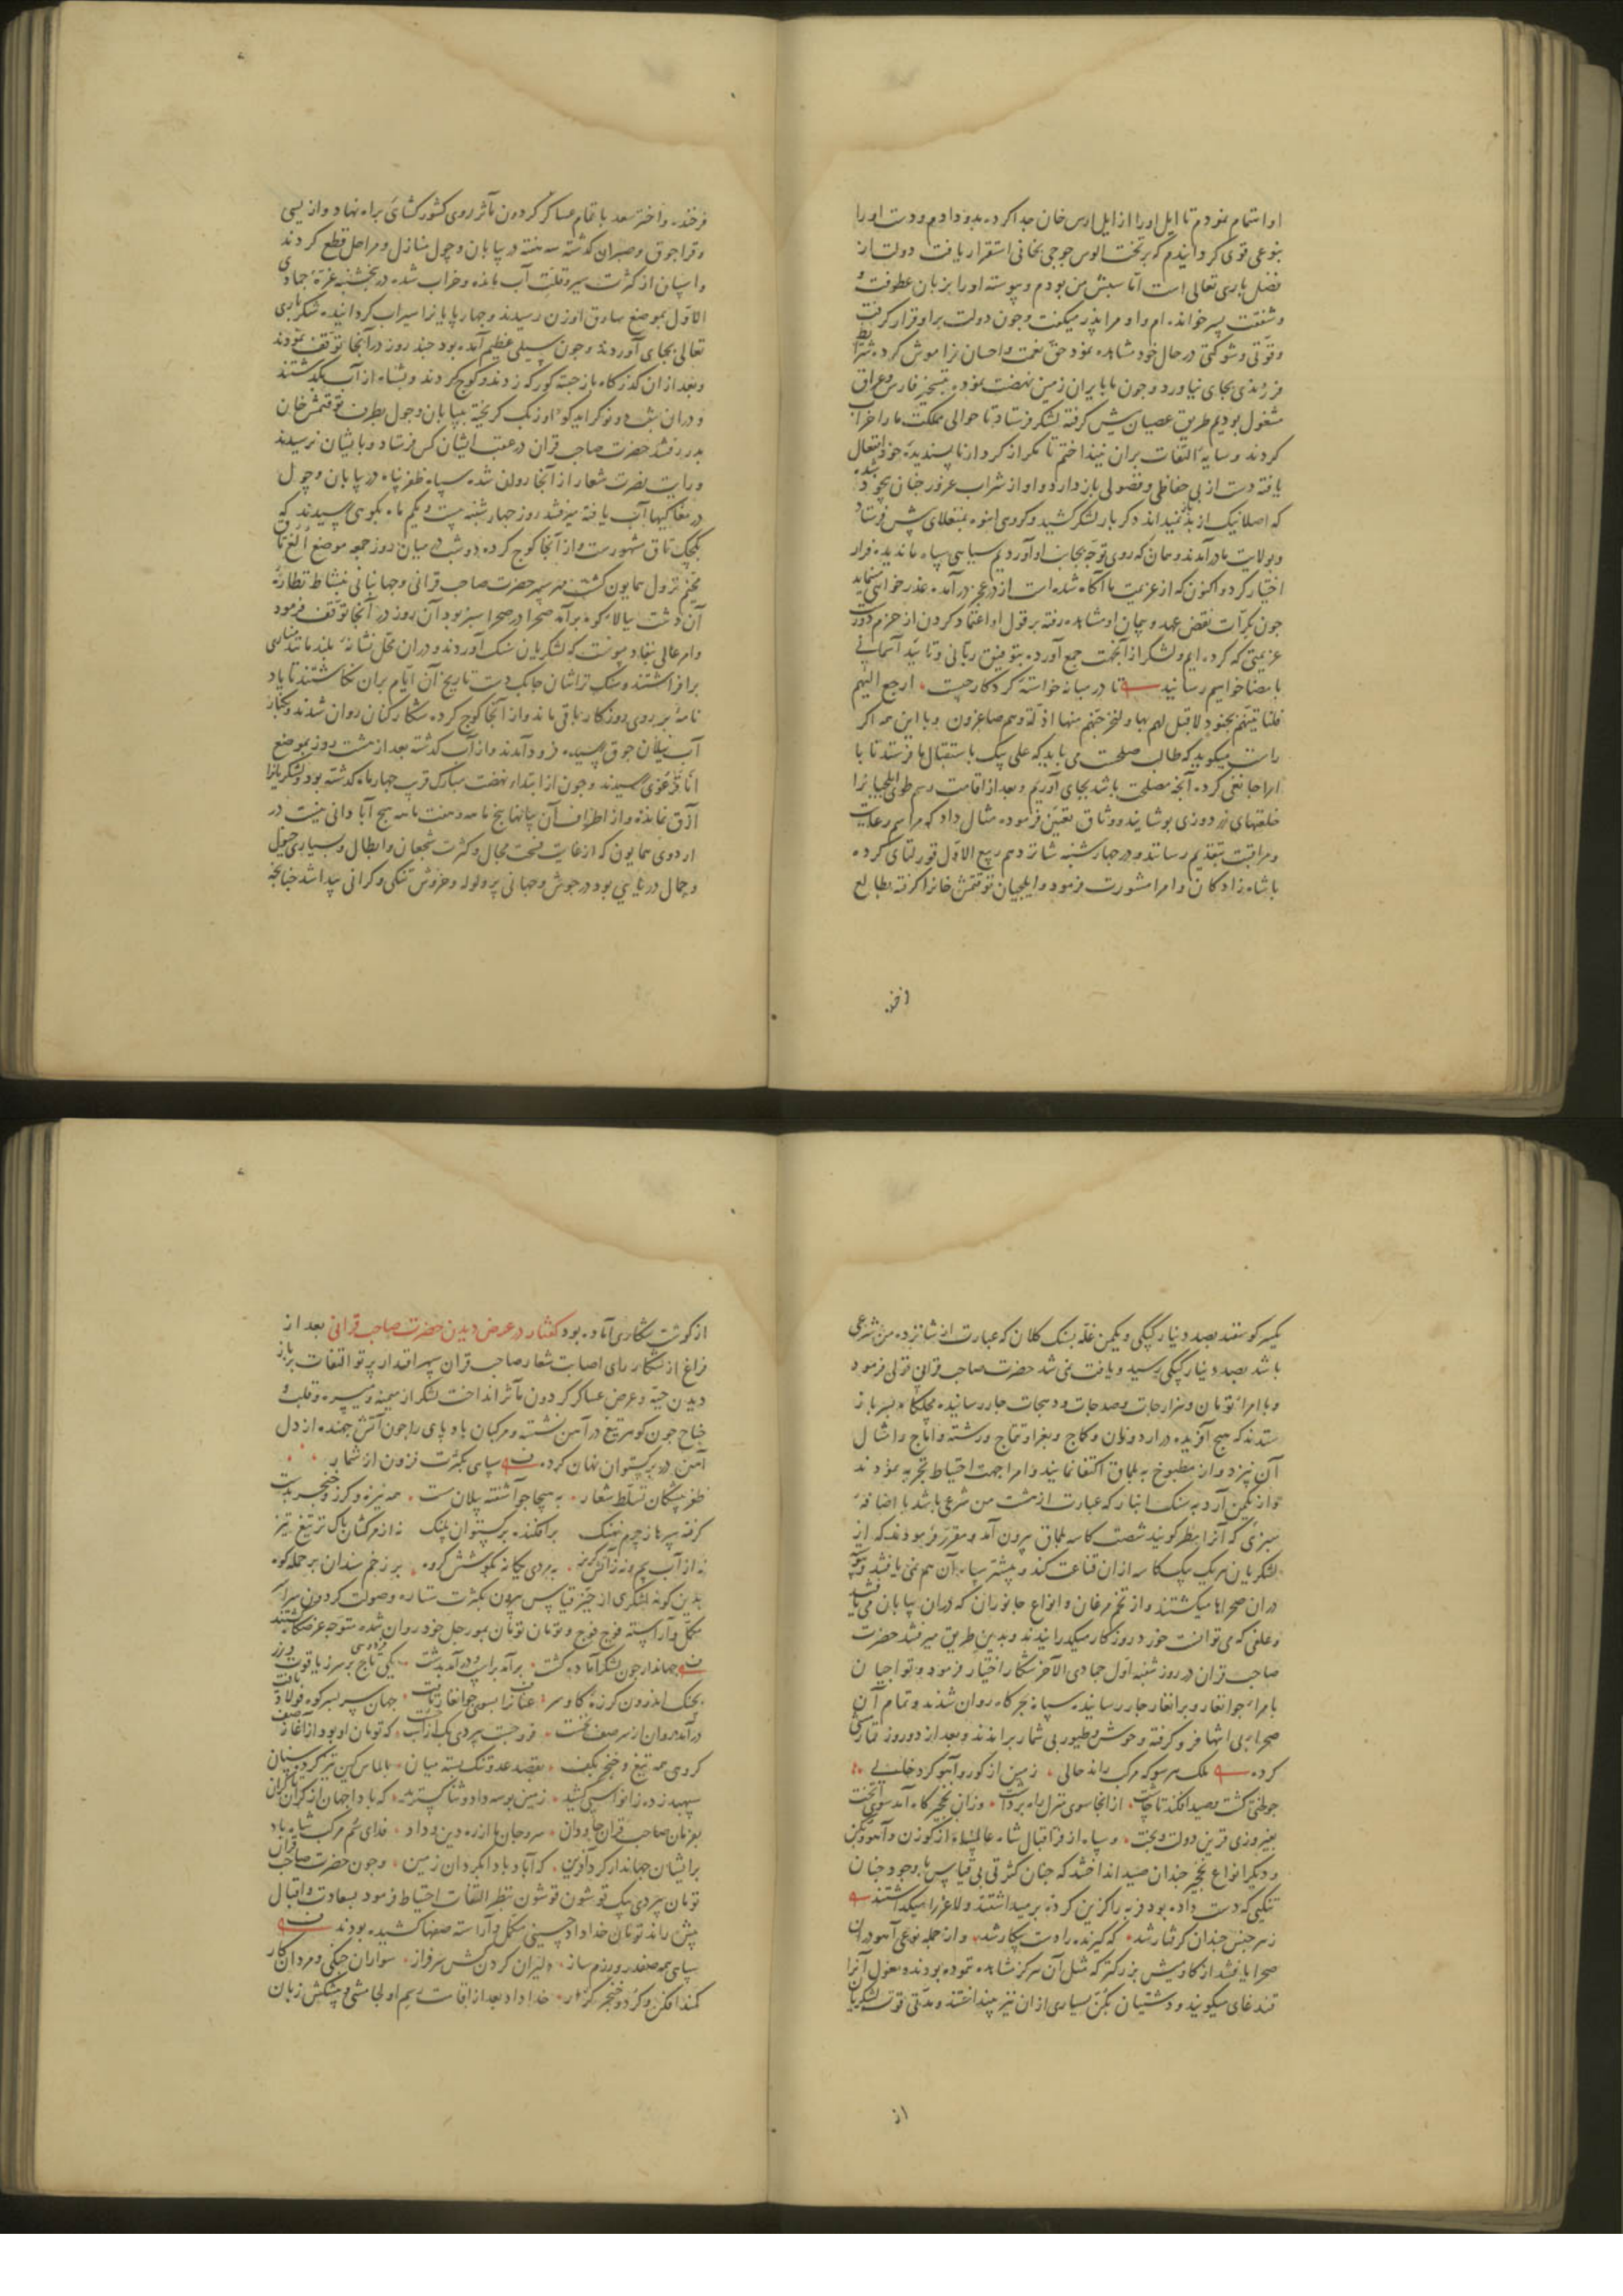 او اهتمام نمودم تا ایل اورا از ایل ارس خان جدا کرده بدو دادم و دست اورا
بنوعی قوی کردانیدم که برتخت الوس جوجی بخانی استقرار یافت دولت از
فضل باری تعالی است اما سببش من بودم و پیوسته اورا بزبان عطوفت و
وشفقت پسر خوانده ام و او مرا پدر میکفت و چون دولت برا و قرار کرفت
وقوتی وشوکتی در حال خود مشاهده نمود حق نعمت واحسان مرا فراموش کرد شرایط
فرزندی بجای نیاورد و چون ما بایران زمین نهضت نموده بتسخیر فارس وعراق
مشغول بودیم طریق عصیان پیش کرفته لشکر فرستاد تا حوالی مملکت ما را خراب
کردند وسایه التفات بران نینداختم تا مکر از کردار ناپسندیده خود انفعال
یافته دست از بی حفاظی وفضولی باز دارد و او از شراب غرور چنان بیخود شده
که اصلا نیک از بد نمیداند دکر بار لشکر کشید وکروهی انبوه بمنغلای پیش فرستاد
وبولایت ما درآمدند وهمان که روی توجه بجانب او آوردیم سیاهی سپاه ما ندیده فرار
اختیار کرد و اکنون که از عزیمت ما آکاه شده است از در عجز درآمده عذر خواهی مینماید
چون بکرات نقض عهد و پیمان او مشاهده رفته بر قول او اعتماد کردن از حزم دورست
عزیمتی که کرده ایم ولشکر از آنجهت جمع آورده بتوفیق ربانی وتایید آسمانی
بامضا خواهیم رسانید تا در میانه خواسته کردکار چیست ارجع الیهم
فلناتینهم بجنود لا قبل لهم بها ولنخرجنهم منها اذلة وهم صاغرون وبا این همه اکر
راست میکوید که طالب صلحست می باید که علی بیک باستقبال ما فرستد تا با
امرا جانقی کرده آنچه مصلحت باشد بجای آوریم وبعد از اقامت رسم طوی ایلچیانرا
خلعتهای زردوزی پوشانید ووثاق تعیین فرموده مثال داد که مراسم رعایت
ومراقبت بتقدیم رسانند و در چهارشنبه شانزدهم ربیع الاول قورلتای کرده
با شاه زادکان وامرا مشورت فرمود وایلچیان توقتمش خانرا کرفته بطالع
فرخنده واختر سعد با تمام عساکر کردون مآثر روی کشورکشای براه نهاد و از یسی
وقراجوق وصبران کذشته سه هفته در بیابان وچول منازل ومراحل قطع کردند
واسپان از کثرت سیر وقلت آب مانده وخراب شده در پنجشنبه غره جمادی
الاول بموضع سارق اوزن رسیدند وچهارپایانرا سیراب کردانیده شکر باری
تعالی بجای آوردند وچون سیلی عظیم آمده بود چند روز در آنجا توقف نمودند
وبعد ازان کذرکاه باز جسته کورکه زدند وکوچ کردند وبشناه از آب بکذشتند
ودران شب دو نوکر ایدکو اوزبک کریخته ببیابان وچول بطرف توقتمش خان
بدر رفتند حضرت صاحب قران در عقب ایشان کس فرستاد وبایشان نرسیدند
ورایت نصرت شعار از آنجا روان شده سپاه ظفرپناه در بیابان وچول
در مغاکیها آب یافته میرفتند روز چهارشنبه بیست ویکم ماه بکوهی رسیدند که
بکچک تاق مشهورست واز آنجا کوچ کرده دو شب در میان روز جمعه موضع الغ تاق
مخیم نزول همایون کشت مهر سپهر حضرت صاحب قرانی وجهانبانی بنشاط نظاره
آن دشت ببالاء کوه برآمد صحرا در صحرا سبزه بود آن روز در آنجا توقف فرمود
وامر عالی بنفاذ پیوست که لشکریان سنک آوردند ودران محل نشانه بلند مانند مناری
برافراشتند وسنک تراشان چابک دست تاریخ آن ایام بران نکاشتند تا یاد
نامه بر روی روزکار باقی ماند واز آنجا کوچ کرده شکار کنان روان شدند وبکنار
آب ییلان جوق رسیده فرود آمدند واز آب کذشته بعد از هشت روز بموضع
اناقرغوی رسیدند وچون از ابتداء نهضت مبارک قرب چهار ماه کذشته بود ولشکریانرا
آزق نمانده واز اطراف آن بیابانها پنج ماهه وهفت ماهه هیچ آبادانی نیست در
اردوی همایون که از غایت فسحت مجال وکثرت شجعان وابطال وبسیاری خیول
وجمال دریایی بود در جوش وجهانی پر ولوله وخروش تنکی وکرانی پیدا شد چنانچه
افـ
یکسر کوسفند بصد دینار کپکی ویکمن غله بسنک کلان که عبارت از شانزده من شرعی
باشد بصد دینار کپکی رسید ویافت نمی شد حضرت صاحب قرانی قولی فرمود
وبا امراء تومان وهزارجات وصدجات ودهجات جار رسانیده مچلکا بسر باز
ستدند که هیچ آفریده در اردو نان وکماج وبغرا وتتماج ورشته واماج وامثال
آن نپزد واز مطبوخ به بلماق اکتفا نمایند وامرا جهت احتیاط تجربه نمودند
واز یکمن آرد به سنک انبار که عبارت از هشت من شرعی باشد با اضافه
سبزی که آنرا مطر کویند شصت کاسه بلماق بیرون آمد ومقرر فرمودند که از
لشکریان هر یک بیک کاسه ازان قناعت کند وبیشتر سپاه آن هم نمی یافتند وپیوسته
دران صحراها میکشتند واز تخم مرغان وانواع جانوران که دران بیابان می یافتند
وعلفی که می توانست خورد روزکار میکذرانیدند وبدین طریق میرفتند حضرت
صاحب قران در روز شنبه اول جمادی الآخر شکار اختیار فرموده وتواجیان
بامراء جوانغار وبرانغار جار رسانیده سپاه بجرکاه روان شدند وتمام آن
صحراء بی انتها فرو کرفته وحوش وطیور بی شمار براندند وبعد از دو روز قمارمشی
کرده ملک هرسو که مرکب راند حالی زمین از کور وآهو کرد خالی
چو لختی کشت وصید افکند تا چاشت ازانجا سوی منزل راه برداشت وزان نخجیرکاه آمد سوی تخت
بفیروزی قرین دولت وبخت وسپاه از فر اقبال شاه عالم پناه از کوزن وآهو وکن
ودیکر انواع نخجیر چندان صید انداختند که چنان کثرتی بی قیاس با وجود چنان
تنکیی که دست داده بود فربه را کزین کرده برمیداشتند ولاغر را میکذاشتند
زهر جنس چندان کرفتار شد که کیرنده را دست بیکار شد واز جمله نوعی آهو دران
صحرا یافتند از کاومیش بزرکتر که مثل آن هرکز مشاهده ننموده بودند ومغول آنرا
قندغای میکویند ودشتیان بکن بسیاری ازان نیز بینداختند ومدتی قوت لشکریان
از کوشت شکاری آماده بود کفتار در عرض دیدن حضرت صاحب قرانی بعد از
فراغ از شکار رای اصابت شعار صاحب قران سپهر اقتدار پرتو التفات بر باز
دیدن جیبه وعرض عساکر کردون مآثر انداخت لشکر از میمنه ومیسره وقلب و
جناح چون کوه تیغ در آهن نشسته ومرکبان باد پای را چون آتش جهنده از دل
آهن در برکستوان نهان کرده سپاهی بکثرت فزون از شمار
ظفر پیشکان تسلط شعار به هیجا چو آشفته پیلان مست همه نیزه وکرز وخنجر بدست
کرفته سپرها ز چرم نهنک برافکنده برکستوان پلنک نه از مرکشان باک نز تیغ تیز
نه از آب بیم ونه ز آتش کریز به مردی یکانه بکوشش کروه بر زخم سندان بر حمله کوه
بدین کونه لشکری از حیز قیاس بیرون بکثرت ستاره وصولت کردون همه
مکمل وآراسته فوج فوج وتومان تومان بمورچل خود روان شده متوجه عرضکاه کشتند
جهاندار چون لشکر آماده کشت برآمد بر اسب ودرآمد بدشت یکی تاج بر سر ز یاقوت وزر
بچنک اندرون کرزه کاو سر عنانرا بسوی جوانغار تافت جهان سر بسر کوه فولاد یافت
درآمد روان از سر صف نخست فرو جست بیردی بیک از اسب چست که تومان او بود از آغاز صف
کروهی همه تیغ وخنجر بکف بقصد عدو تنک بسته میان بالماس کین تیز کرده سنان
سپهبد زده زانو اسپی کشید زمین بوسه داد وثنا کسترید که بادا جهان از کران تا کران
بفرمان صاحب قران جاودان سر وجان ما از ره دین وداد فدای سم مرکب شاه باد
بر ایشان جهاندار کرد آفرین که آباد بادا بکردان زمین وچون حضرت صاحب قران
تومان بیردی بیک قوشون قوشون بنظر التفات احتیاط فرمود بسعادت واقبال
پیش راند تومان خداداد حسینی مکمل وآراسته صفها کشیده بودند
سپاهی همه صفدر ورزم ساز دلیران کردن کش سرفراز سواران جنکی ومردان کار
کمند افکن وکرد وخنجر کذار خداداد بعد از اقامت رسم اولجامشی وپیشکش زبان
از